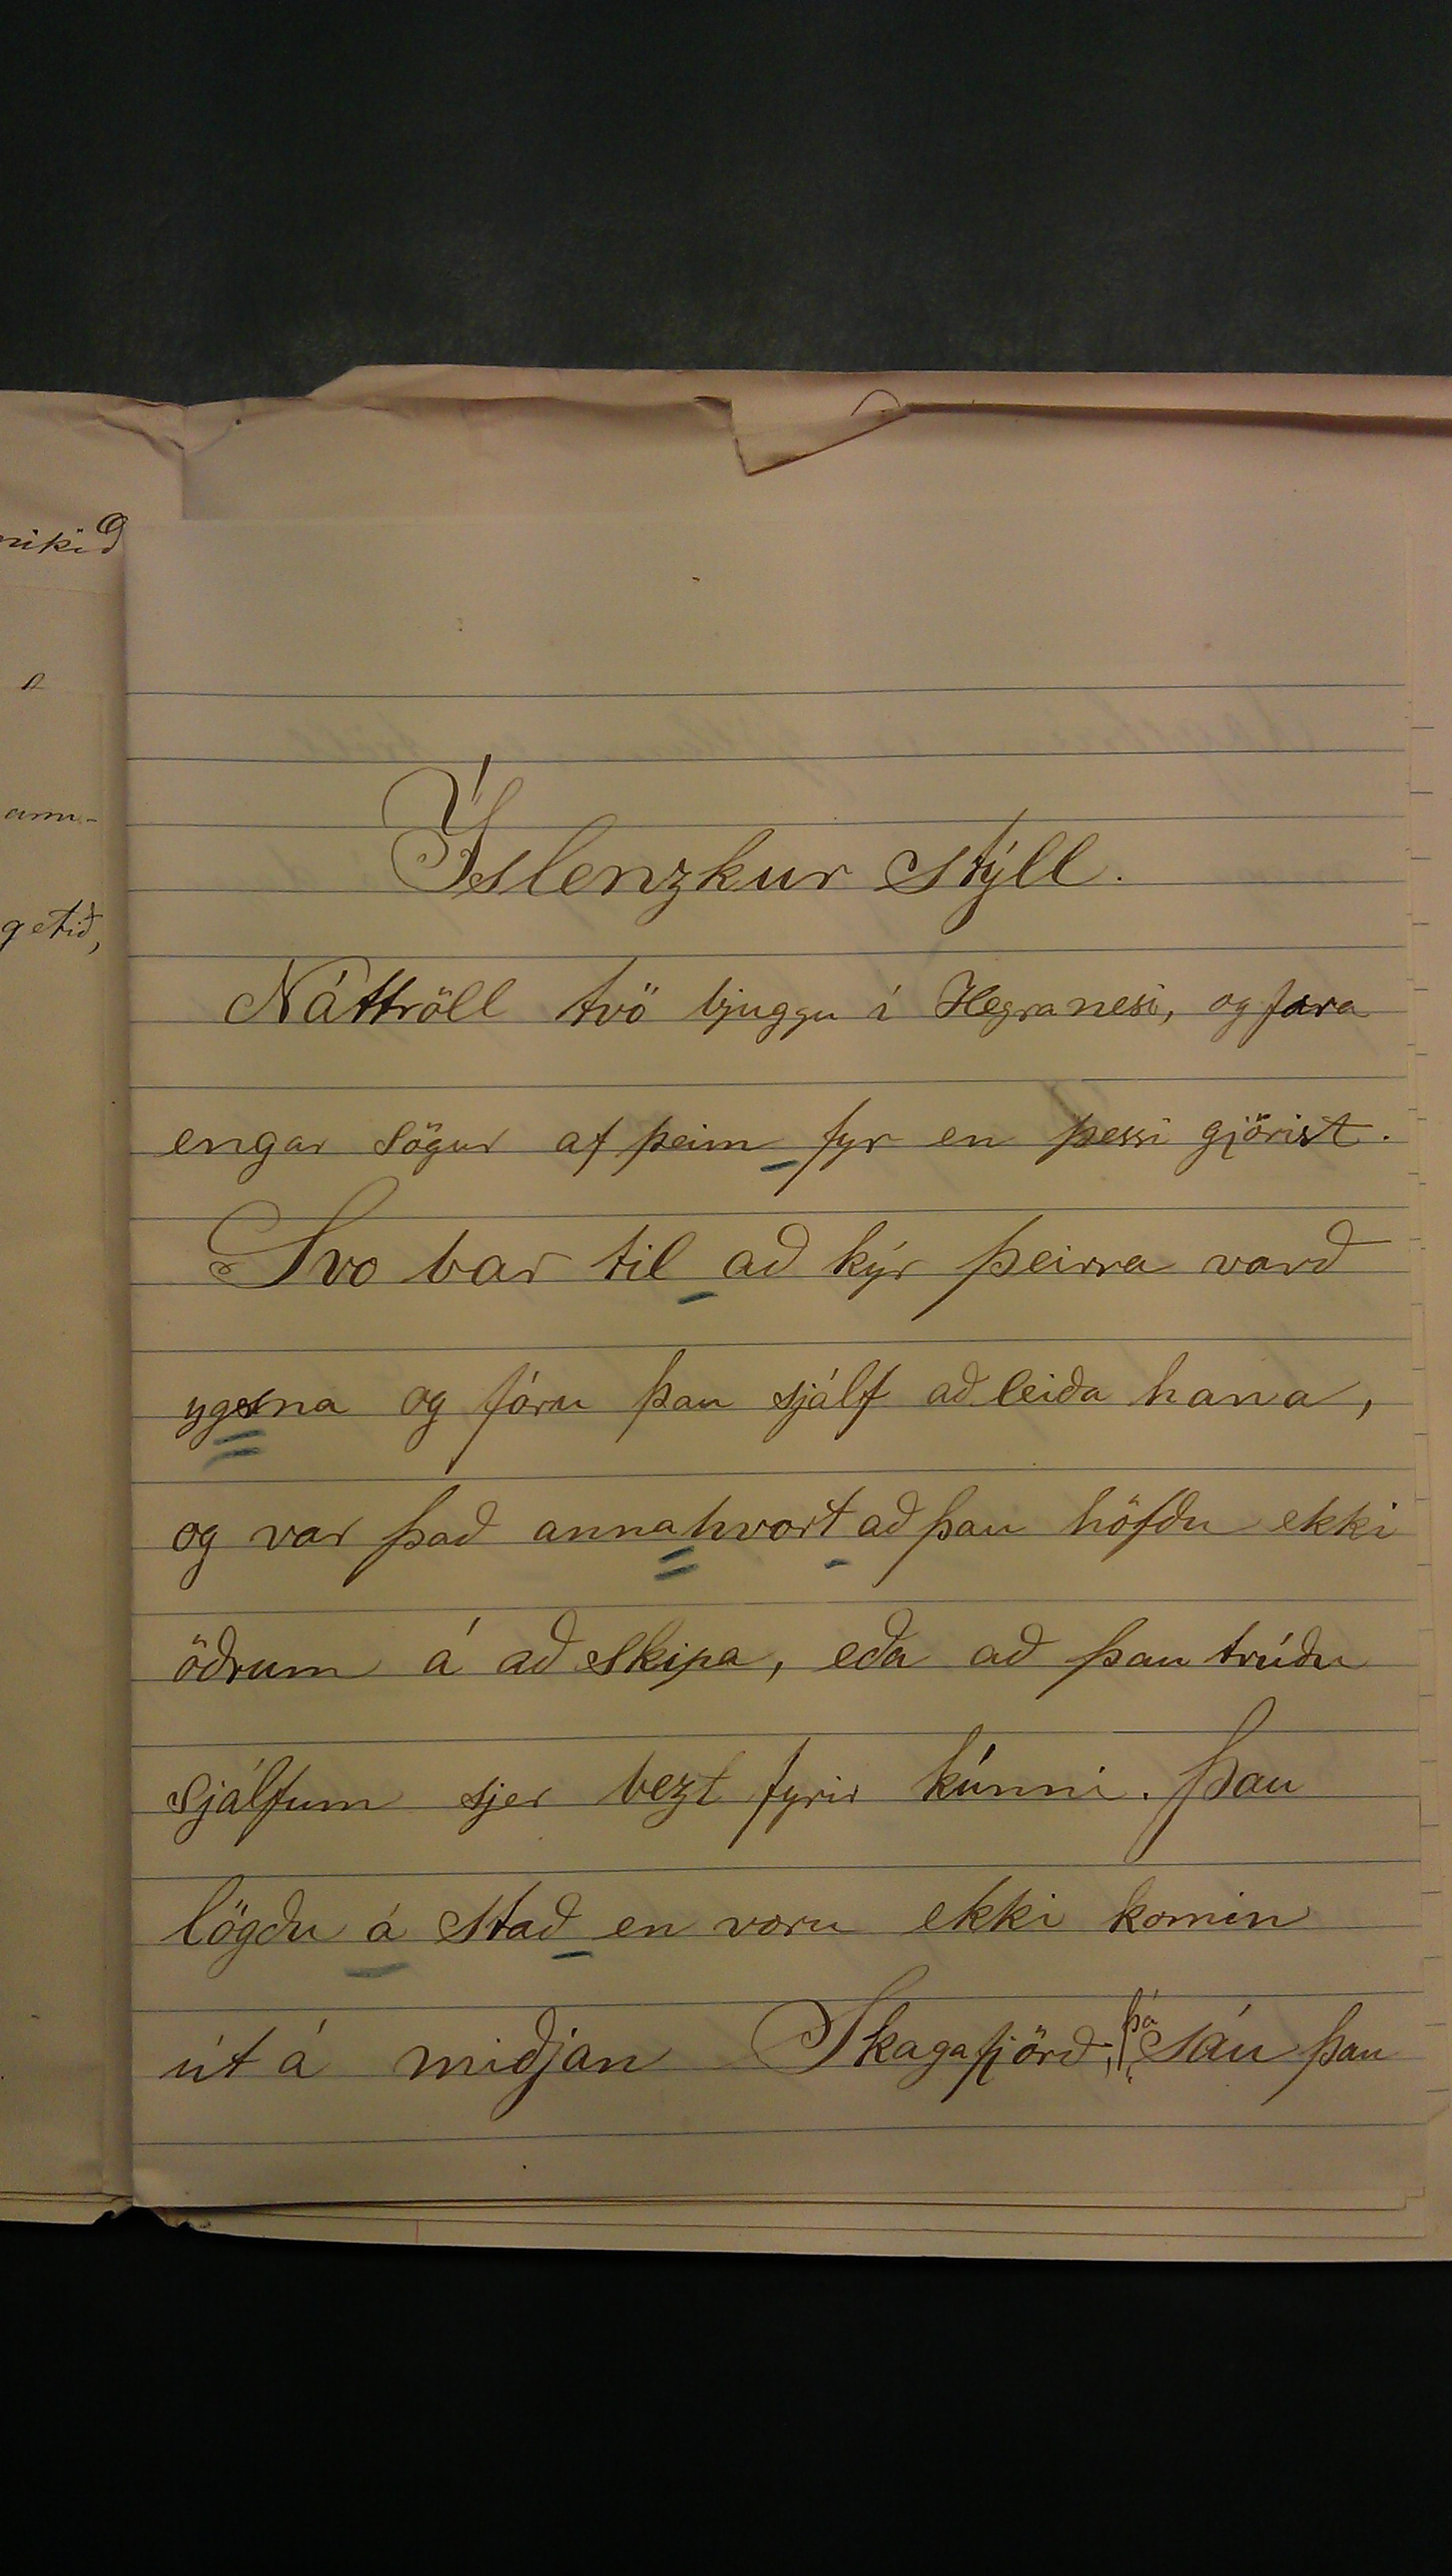 Íslenzkur stýll.
Náttröll tvö bjuggu í Hegranesi, og fara
engar sögur af þeim fyr en þessi gjörist.
Svo bar til að kýr þeirra varð
ygsna og fóru þau sjálf að leiða hana,
og var það annahvort að þau höfðu ekki
öðrum á að skipa, eða að þau trúðu
sjálfum sjer bezt fyrir kúnni. Þau
lögðu á stað en voru ekki komin
út á miðjan Skagafjörð, þá sáu þau
mikið
getið,